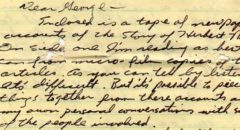 Dear George –
Enclosed is a tape of newspap
accounts of the Story of Herbert M
On side one I'm reading as best
from micro-film copies of t
articles. As you can tell by liste
lots different. But it's possible to piece
things together from these accounts a
my own personal conversations with s
of the people involved.